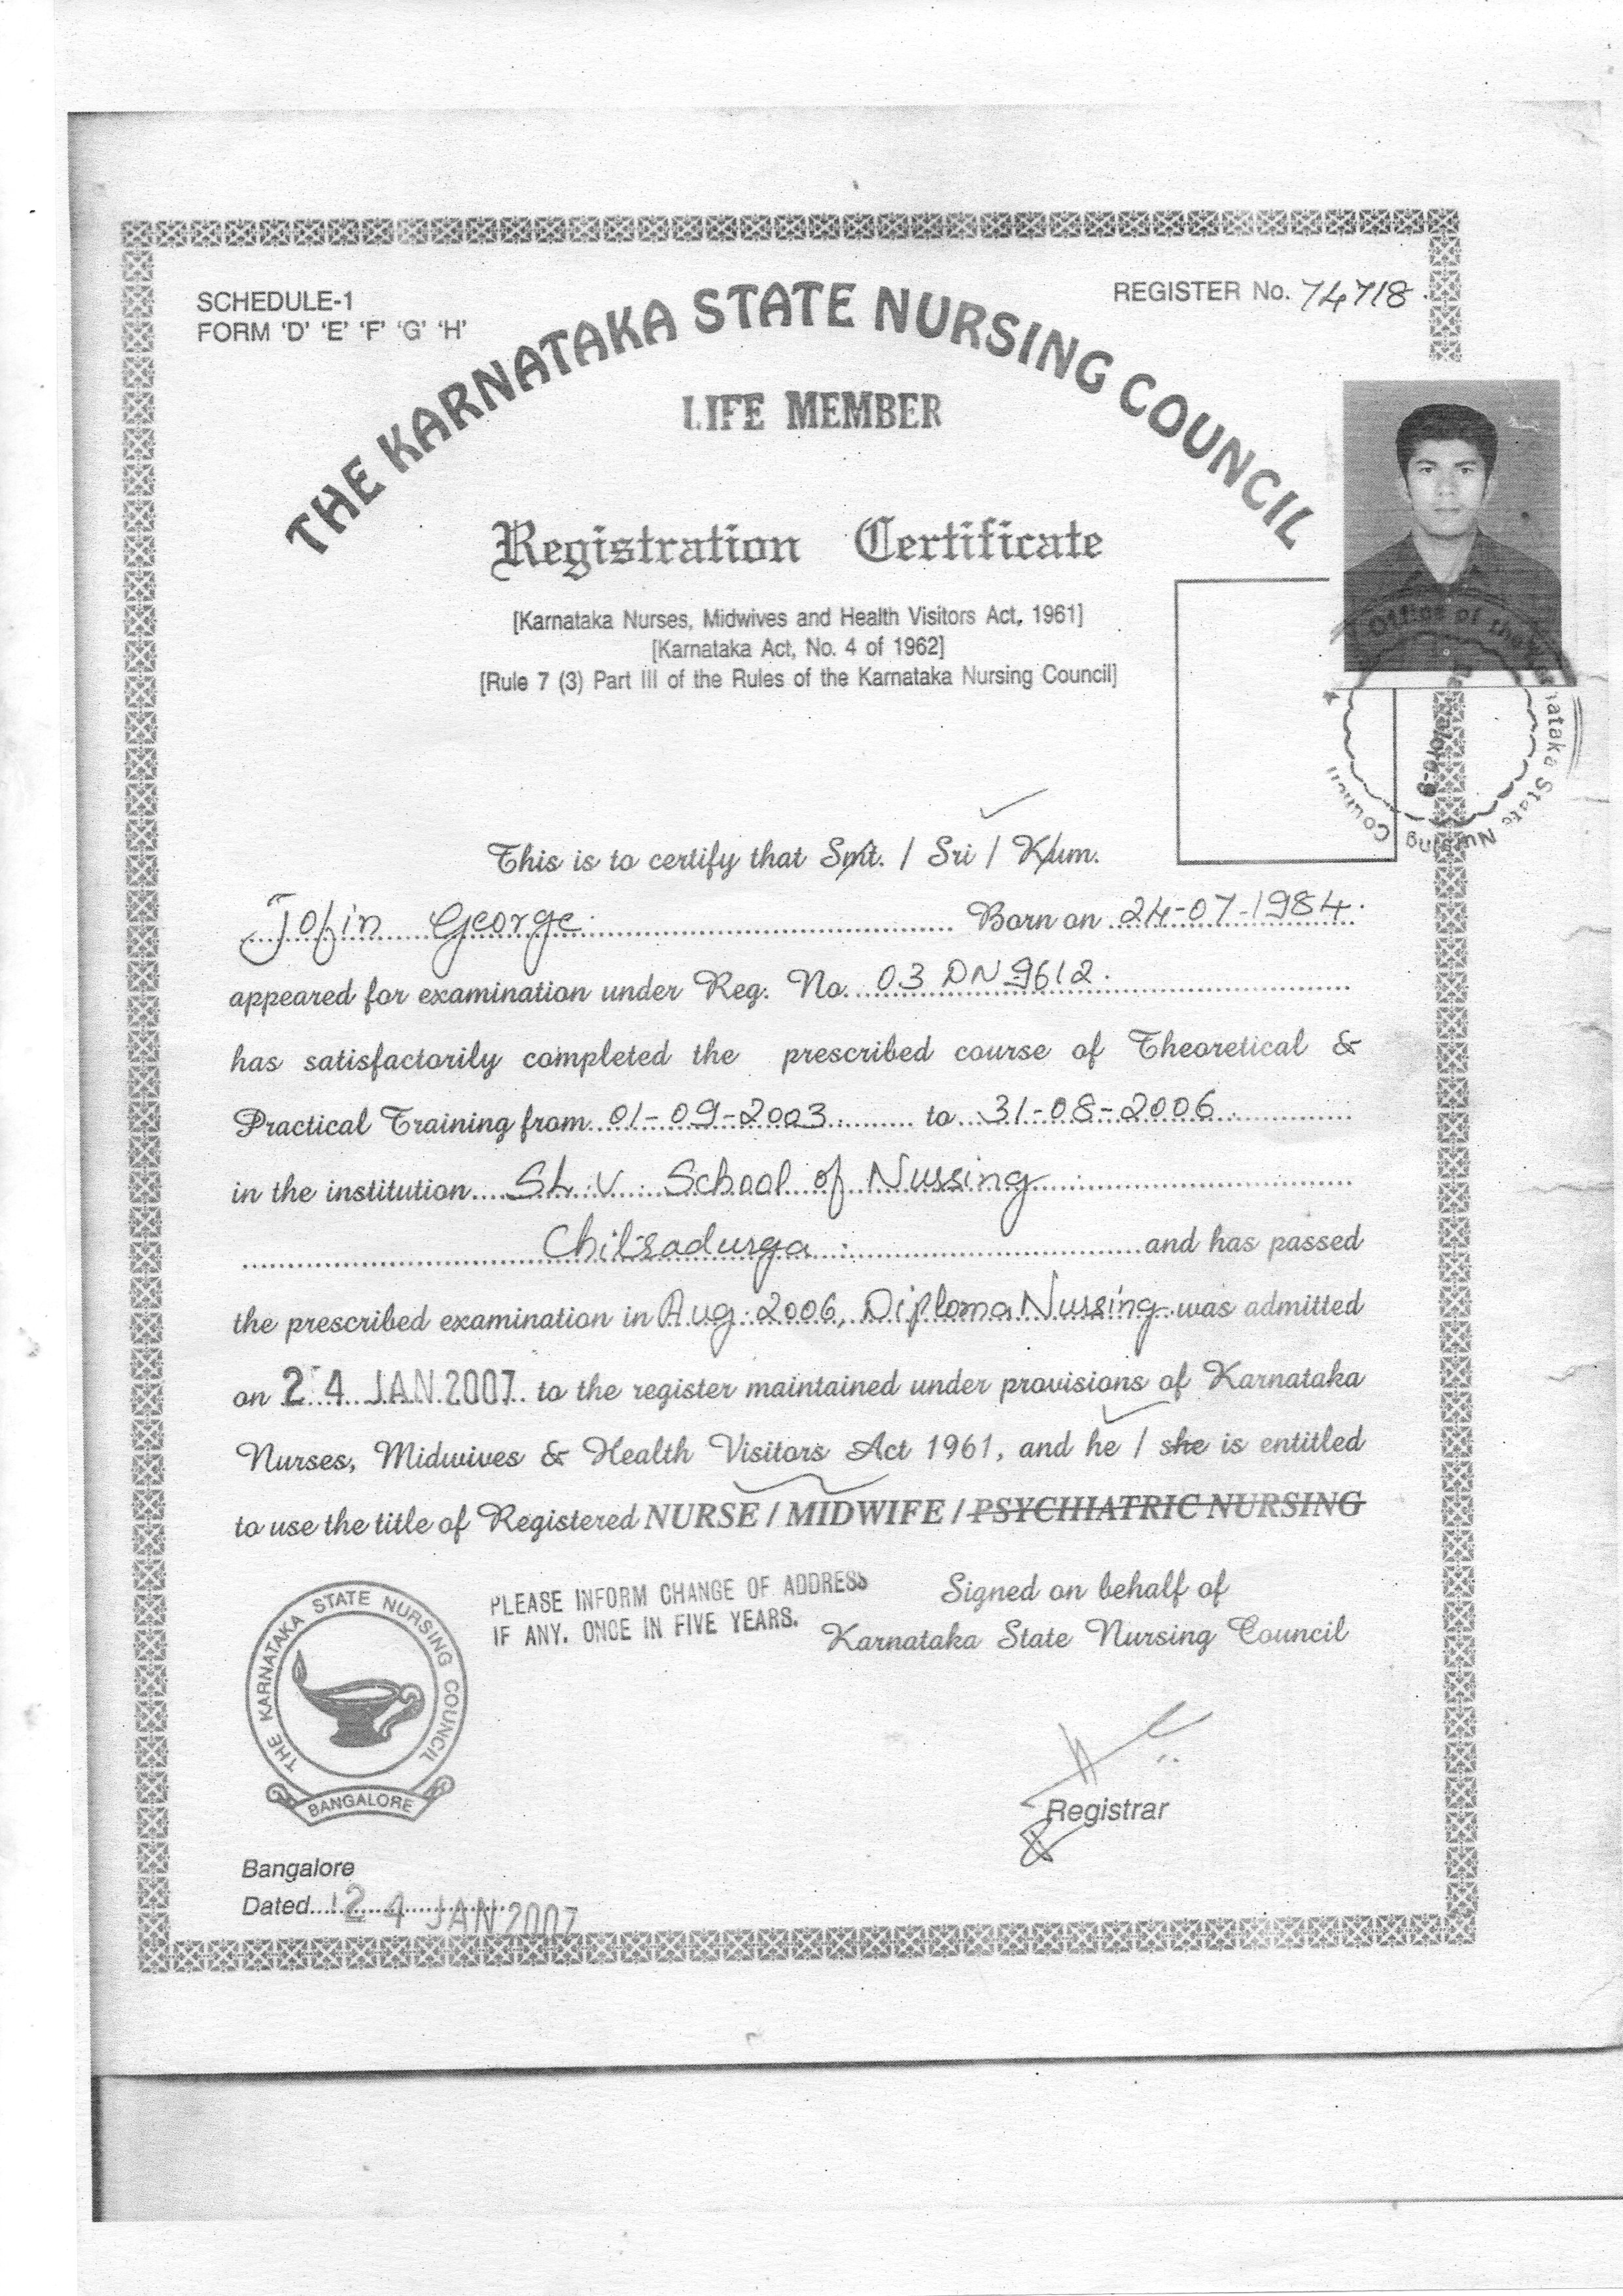 SCHEDULE-1
FORM 'D' 'E' 'F' 'G' 'H'
REGISTER No. 74718
THE KARNATAKA STATE NURSING COUNCIL
LIFE MEMBER
Registration Certificate
[Karnataka Nurses, Midwives and Health Visitors Act, 1961]
[Karnataka Act, No. 4 of 1962]
[Rule 7 (3) Part III of the Rules of the Karnataka Nursing Council]
Office of the Karnataka State Nursing Council
This is to certify that Smt. / Sri / Kum.
Jofin George Born on 24-07-1984
appeared for examination under Reg. No. 03 DN 9612
has satisfactorily completed the prescribed course of Theoretical &
Practical Training from 01-09-2003 to 31-08-2006
in the institution School of Nursing
Chitradurga and has passed
the prescribed examination in Aug. 2006, Diploma Nursing was admitted
on 24 JAN 2007 to the register maintained under provisions of Karnataka
Nurses, Midwives & Health Visitors Act 1961, and he / she is entitled
to use the title of Registered NURSE / MIDWIFE / PSYCHIATRIC NURSING
PLEASE INFORM CHANGE OF ADDRESS
IF ANY. ONCE IN FIVE YEARS.
Signed on behalf of
Karnataka State Nursing Council
THE KARNATAKA STATE NURSING COUNCIL
BANGALORE
Registrar
Bangalore
Dated 24 JAN 2007